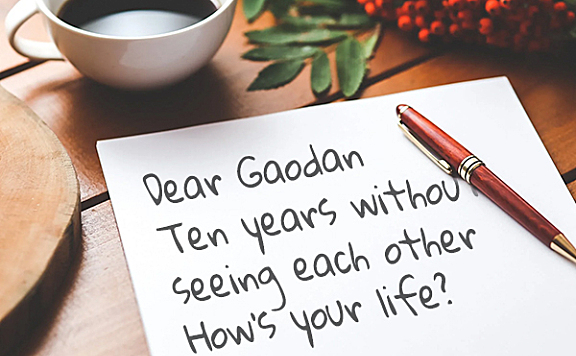 Dear Gaodan
Ten years withou
seeing each other
How's your life?